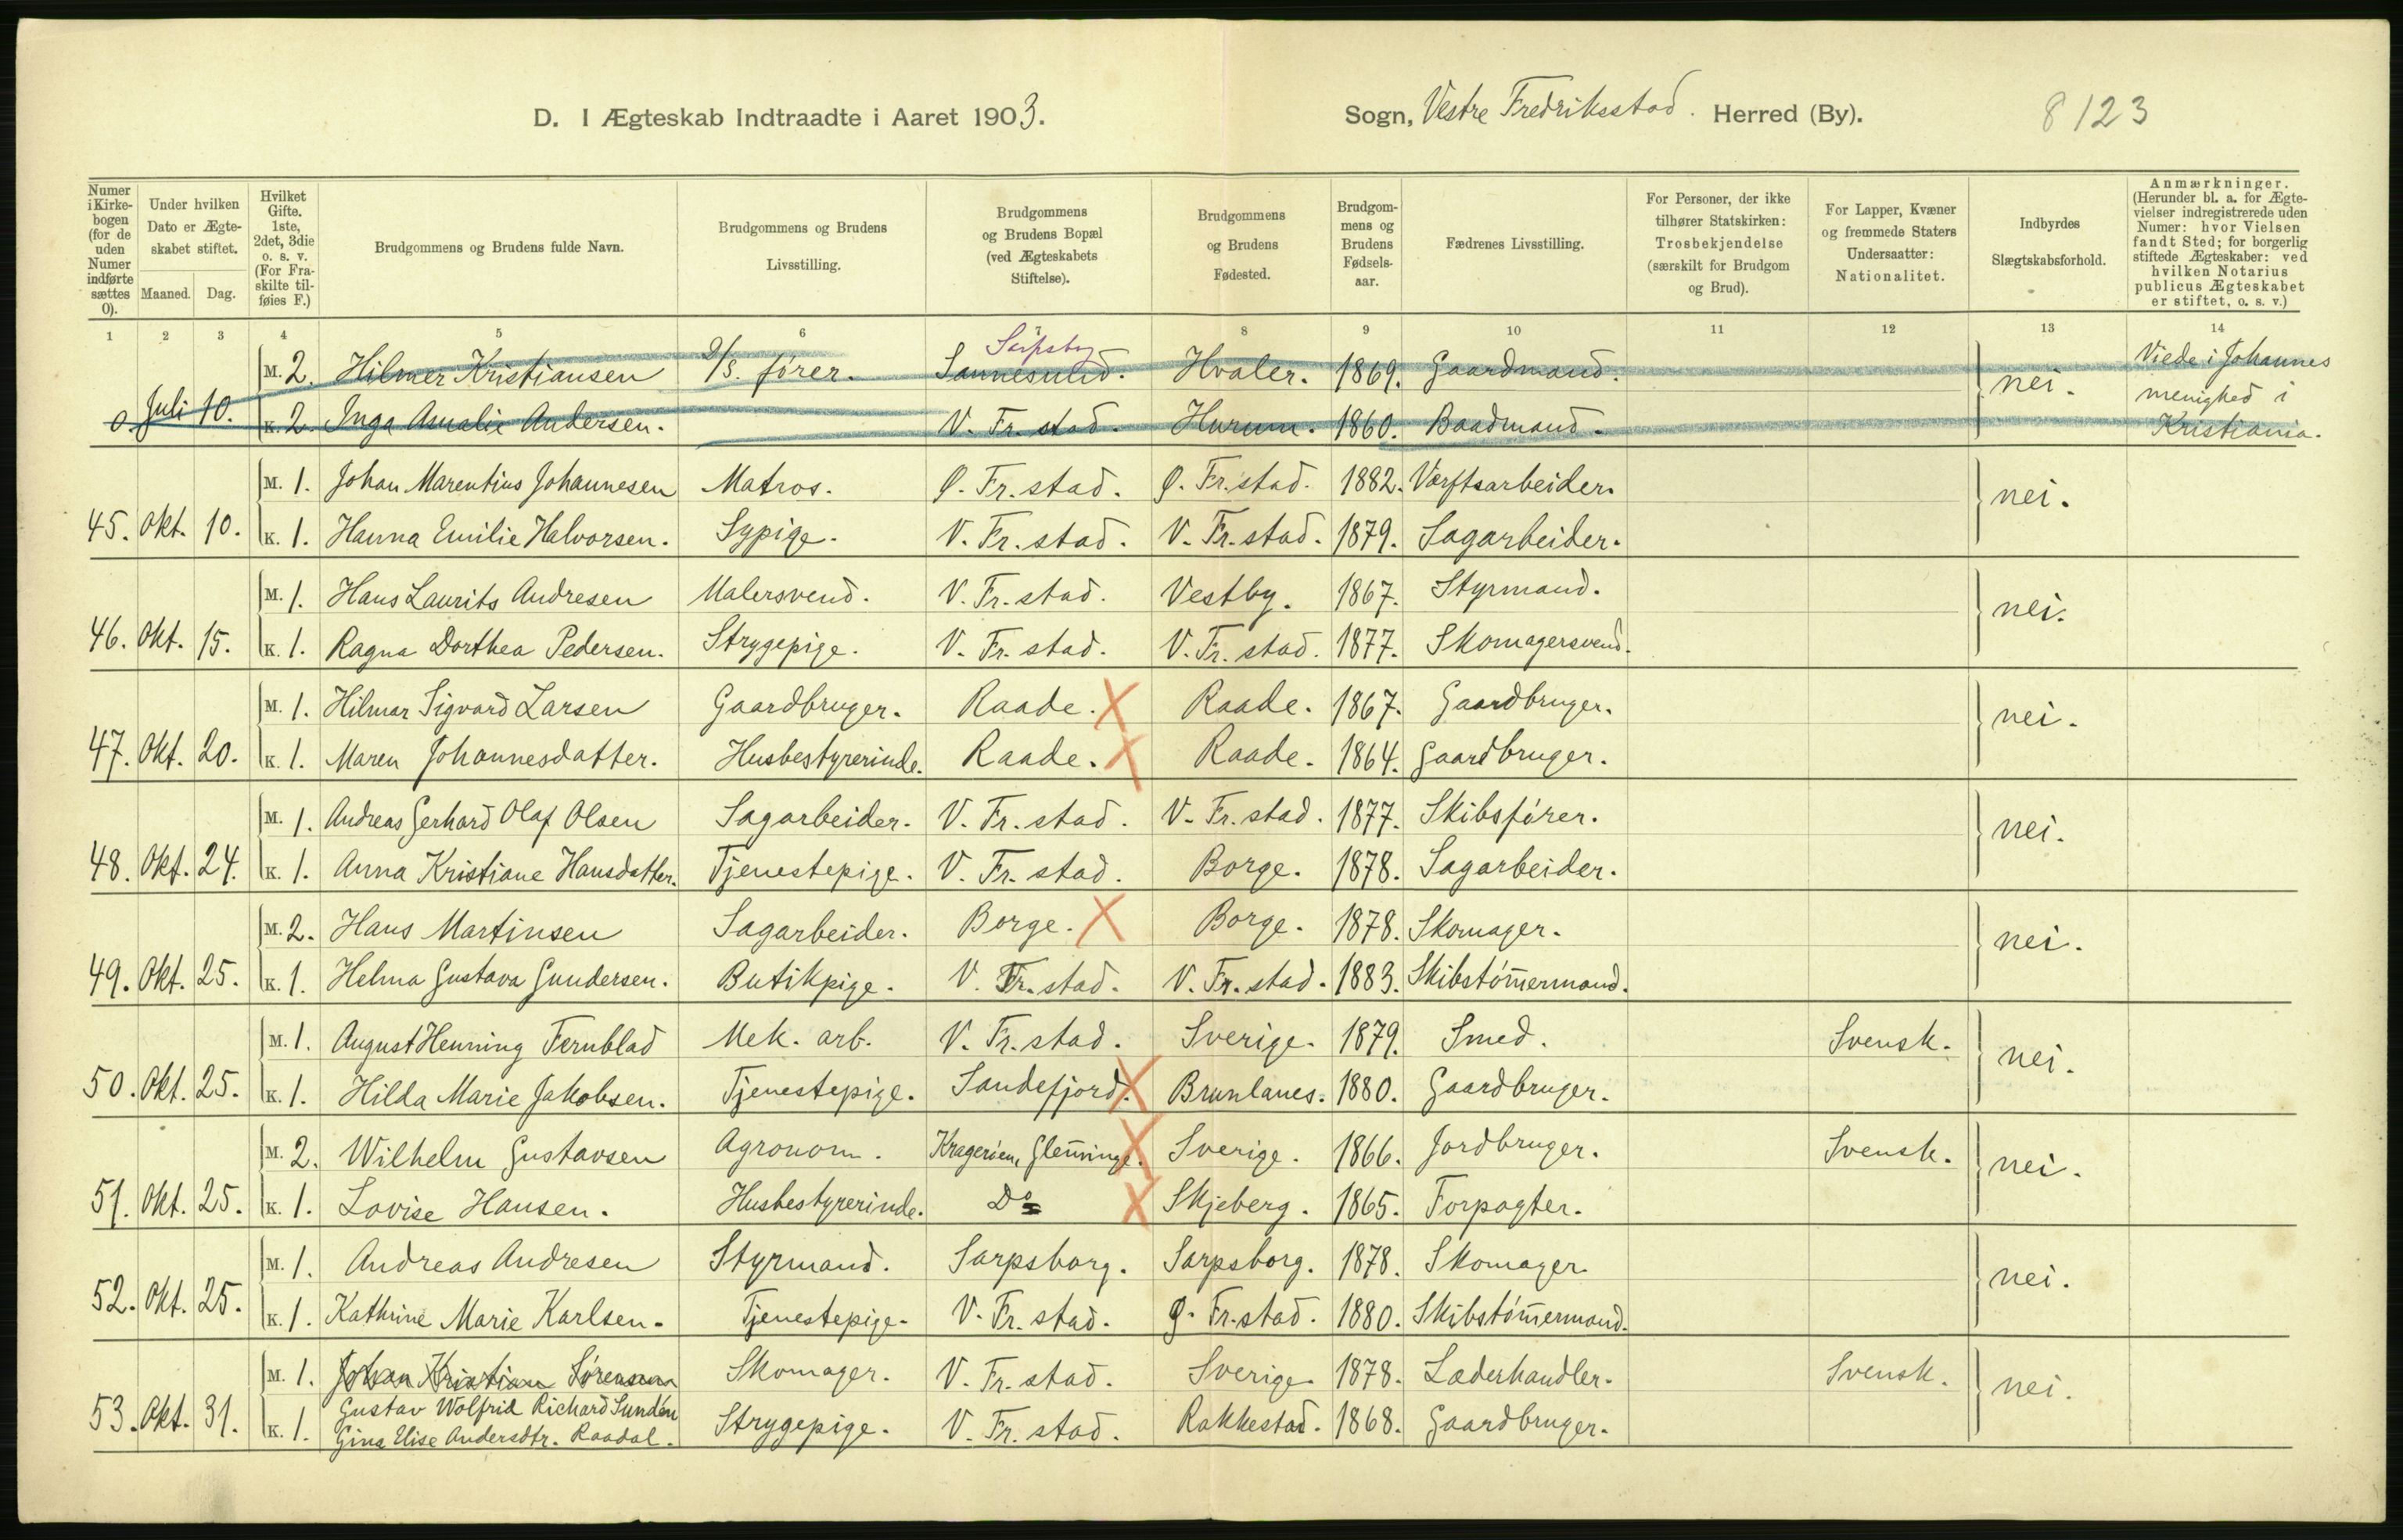 D. I Ægteskab Indtraadte i Aaret 1903. Sogn, Vestre Fredriksstad. Herred (By). 8123
Numer i Kirkebogen (for de uden Numer indførte sættes 0).
Under hvilken Dato er Ægteskabet stiftet.
Maaned. Dag.
Hvilket Gifte. 1ste, 2det, 3die o. s. v. (For Fraskilte tilføies F.)
Brudgommens og Brudens fulde Navn.
Brudgommens og Brudens Livsstilling.
Brudgommens og Brudens Bopæl (ved Ægteskabets Stiftelse).
Brudgommens og Brudens Fødested.
Brudgommens og Brudens Fødselsaar.
Fædrenes Livsstilling.
For Personer, der ikke tilhører Statskirken: Trosbekjendelse (særskilt for Brudgom og Brud).
For Lapper, Kvæner og fremmede Staters Undersaatter: Nationalitet.
Indbyrdes Slægtskabsforhold.
Anmærkninger. (Herunder bl. a. for Ægtevielser indregistrerede uden Numer: hvor Vielsen fandt Sted; for borgerlig stiftede Ægteskaber: ved hvilken Notarius publicus Ægteskabet er stiftet, o. s. v.)
1 2 3 4 5 6 7 8 9 10 11 12 13 14
Sarpsborg
M. 2. Hilmer Kristiansen D/S. fører. Sannesund. Hvaler. 1869. Gaardmand. nei. Viede i Johannes menighed i Kristiania.
0. Juli 10. K. 2. Inga Amalie Andersen. V. Fr. stad. Hurum. 1860. Baadmand.
M. 1. Johan Marentius Johannesen Matros. Ø. Fr. stad. Ø. Fr. stad. 1882. Værftsarbeider. nei.
45. Okt. 10. K. 1. Hanna Emilie Halvorsen. Sypige. V. Fr. stad. V. Fr. stad. 1879. Sagarbeider.
M. 1. Hans Laurits Andresen Malersvend. V. Fr. stad. Vestby. 1867. Styrmand. nei.
46. Okt. 15. K. 1. Ragna Dorthea Pedersen. Strygepige. V. Fr. stad. V. Fr. stad. 1877. Skomagersvend.
M. 1. Hilmar Sigvard Larsen Gaardbruger. Raade. X Raade. 1867. Gaardbruger. nei.
47. Okt. 20. K. 1. Maren Johannesdatter. Husbestyrerinde. Raade. X Raade. 1864. Gaardbruger.
M. 1. Andreas Gerhard Olaf Olsen Sagarbeider. V. Fr. stad. V. Fr. stad. 1877. Skibsfører. nei.
48. Okt. 24. K. 1. Anna Kristiane Hansdatter. Tjenestepige. V. Fr. stad. Borge. 1878. Sagarbeider.
M. 2. Hans Martinsen Sagarbeider. Borge. X Borge. 1878. Skomager. nei.
49. Okt. 25. K. 1. Helma Gustava Gundersen. Butikpige. V. Fr. stad. V. Fr. stad. 1883. Skibstøm̄ermand.
M. 1. August Henning Fernblad Mek. arb. V. Fr. stad. Sverige. 1879. Smed. Svensk. nei.
50. Okt. 25. K. 1. Hilda Marie Jakobsen. Tjenestepige. Sandefjord. X Brunlanes. 1880. Gaardbruger.
M. 2. Wilhelm Gustavsen Agronom. Kragerøen, Glem̄inge. X Sverige. 1866. Jordbruger. Svensk. nei.
51. Okt. 25. K. 1. Lovise Hansen. Husbestyrerinde. Do X Skjeberg. 1865. Forpagter.
M. 1. Andreas Andresen Styrmand. Sarpsborg. Sarpsborg. 1878. Skomager nei.
52. Okt. 25. K. 1. Kathrine Marie Karlsen. Tjenestepige. V. Fr. stad. Ø. Fr. stad. 1880. Skibstøm̄ermand.
M. 1. Johan Kristian Sørensen Skomager. V. Fr. stad. Sverige 1878. Læderhandler. Svensk. nei.
Gustav Wolfrid Richard Sundén
53. Okt. 31. K. 1. Gina Elise Andersdtr. Raadal. Strygepige. V. Fr. stad. Rakkestad. 1868. Gaardbruger.